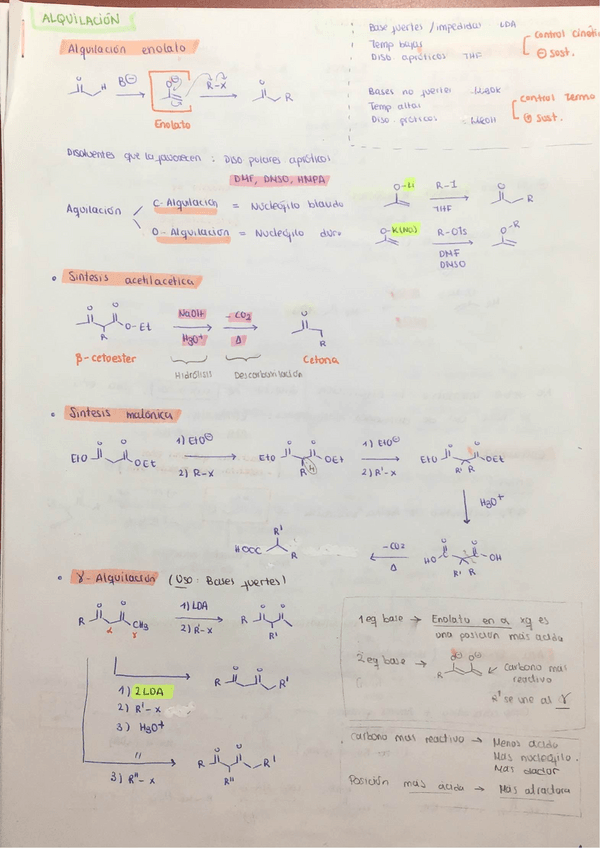 ALQUILACIÓN
Base fuertes / impedidas LDA
Temp bajas
Diso apróticos THF
control cinético
⊖ sust.
Bases no fuertes
Temp altas
Diso próticos MeOH
control Termo
⊕ sust.
Alquilación enolato
H B⊖ O⊖ R-X R
Enolato
Disolventes que la favorecen : Diso polares apróticos
DMF, DMSO, HMPA
Aquilación
C- Alquilación = Nucleófilo blando
O-Li R-I THF O R
O- Alquilación = Nucleófilo duro
O-K(Na) R-OTs DMF DMSO O-R
• Síntesis acetilacética
O O O-Et R
NaOH H3O+
-CO2 Δ
O R
β-cetoester
Hidrólisis
Descarboxilación
Cetona
• Síntesis malónica
EtO O O OEt
1) EtO⊖
2) R-X
EtO O O OEt R H
1) EtO⊖
2) R'-X
EtO O O OEt R' R
H3O+
HO O O OH R' R
-CO2
Δ
HOOC R' R
• γ- Alquilación (Uso: Bases fuertes)
R O O CH3 α γ
1) LDA
2) R'-X
R O O R'
1) 2LDA
2) R'-X
3) H3O+
R O O R'
"
3) R''-X
R O O R' R''
1eq base → Enolato en α xq es
una posición más ácida
2eq base → R O⊖ O⊖ carbono mas
reactivo
R' se une al γ
carbono mas reactivo → Menos ácido
Más nucleófilo.
Más dador
Posición más ácida → Más atractora